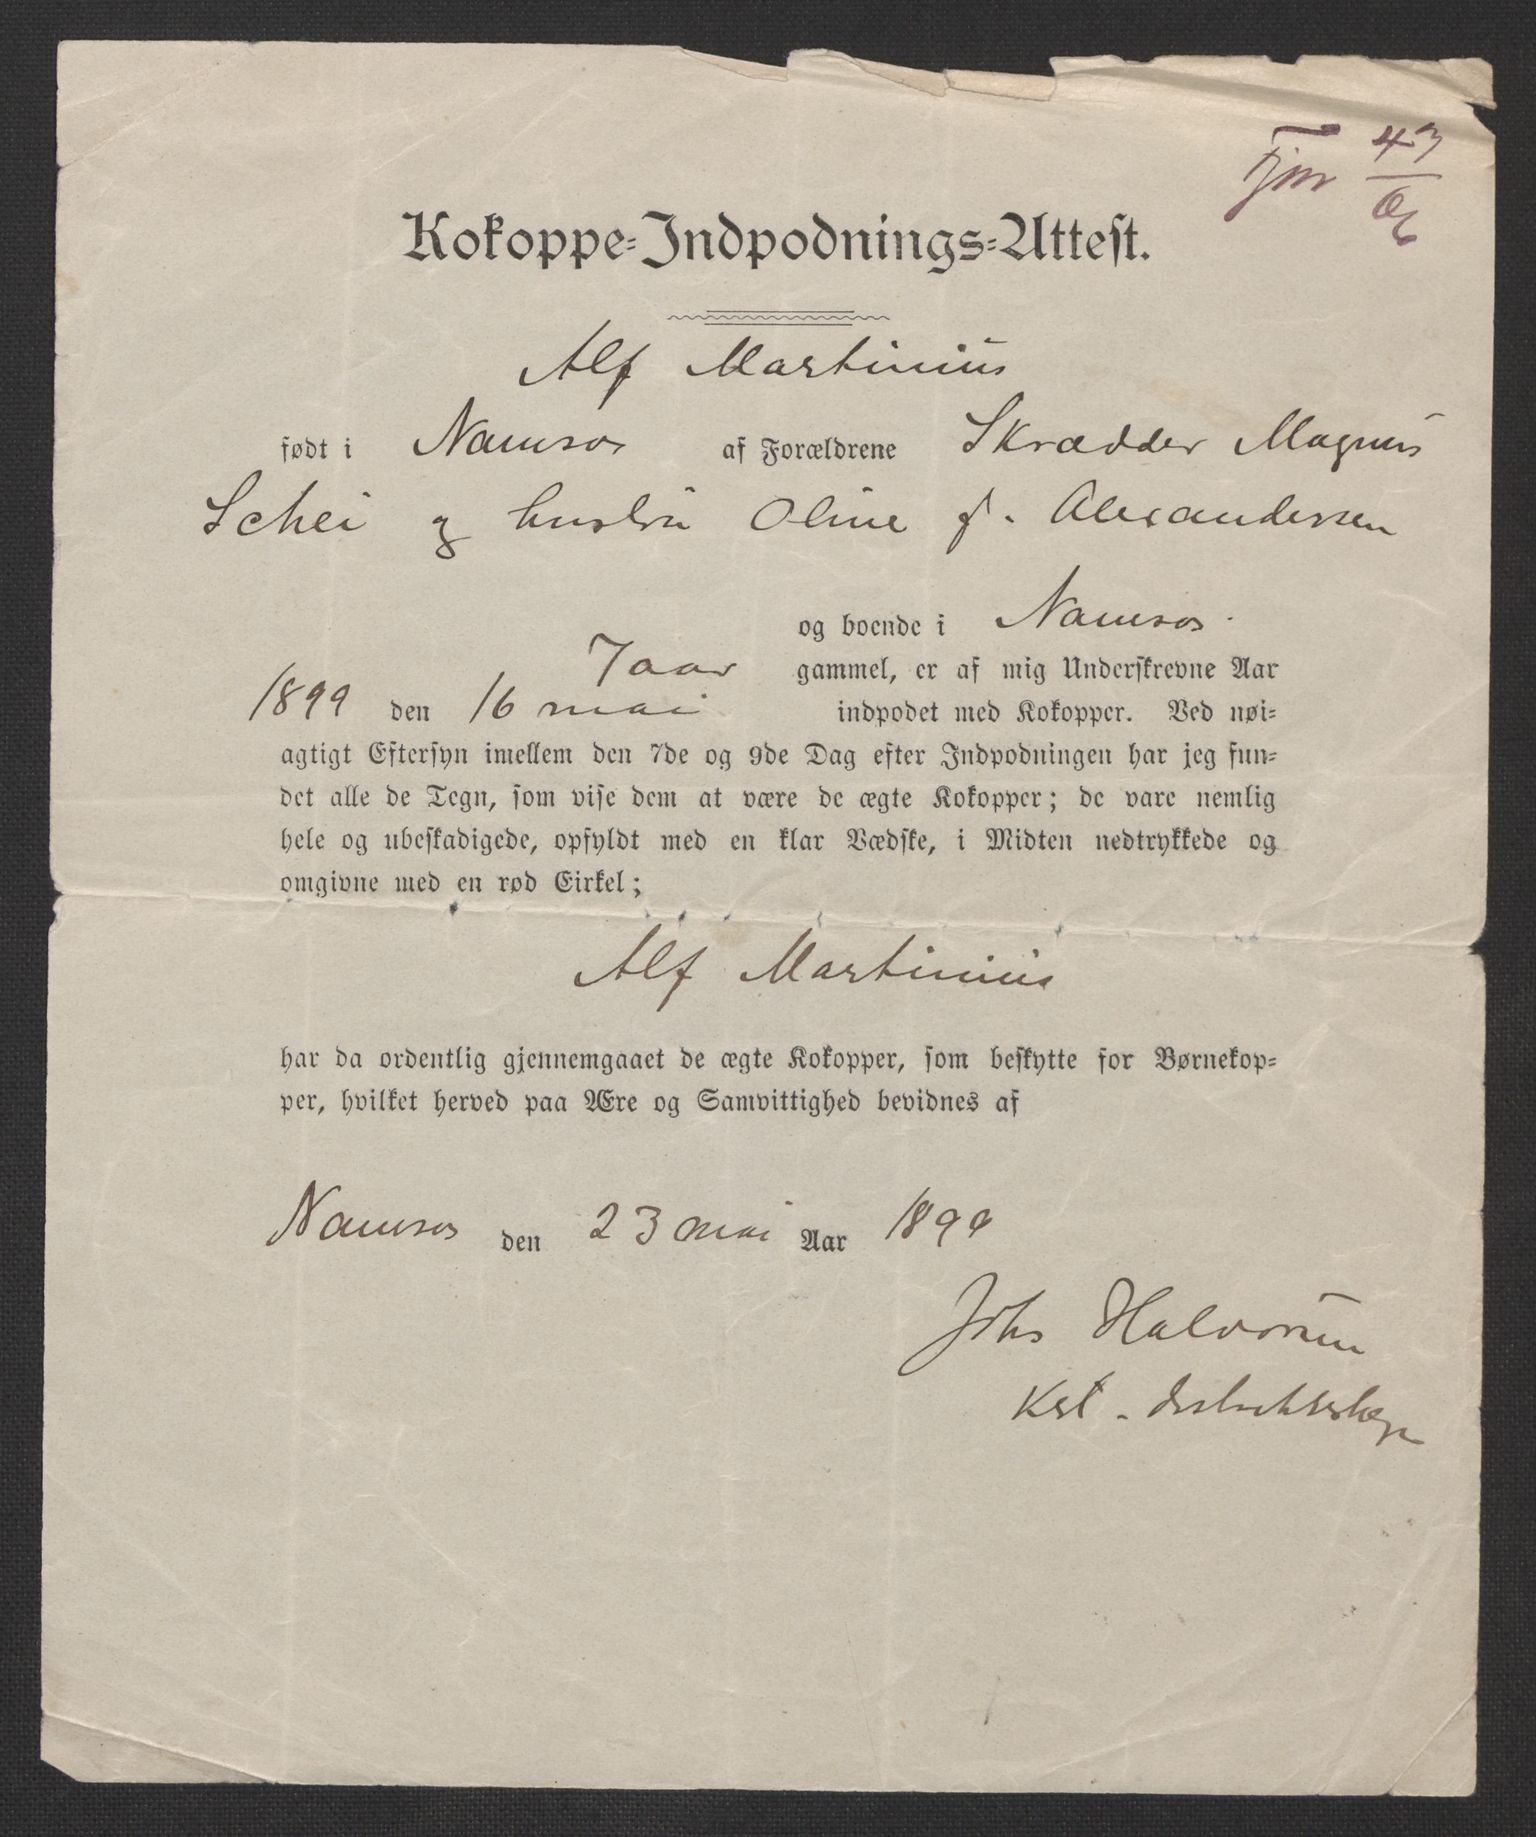 43
Kokoppe-Indpodnings-Attest.
Alf Martinius
født i Namsos af Forældrene Skrædder Magnus
Schei og hustru Oline f. Alexandersen
og boende i Namsos.
7 aar gammel, er af mig Underskrevne Aar
1899 den 16 mai indpodet med Kokopper. Ved nøi-
agtigt Eftersyn imellem den 7de og 9de Dag efter Indpodningen har jeg fun-
det alle de Tegn, som vise dem at være de ægte Kokopper; de vare nemlig
hele og ubeskadigede, opfyldt med en klar Vædske, i Midten nedtrykkede og
omgivne med en rød Cirkel;
Alf Martinius
har da ordentlig gjennemgaaet de ægte Kokopper, som beskytte for Børnekop-
per, hvilket herved paa Ære og Samvittighed bevidnes af
Namsos den 23 mai Aar 1899
Johs Halvorsen
Kst. distriktslæge